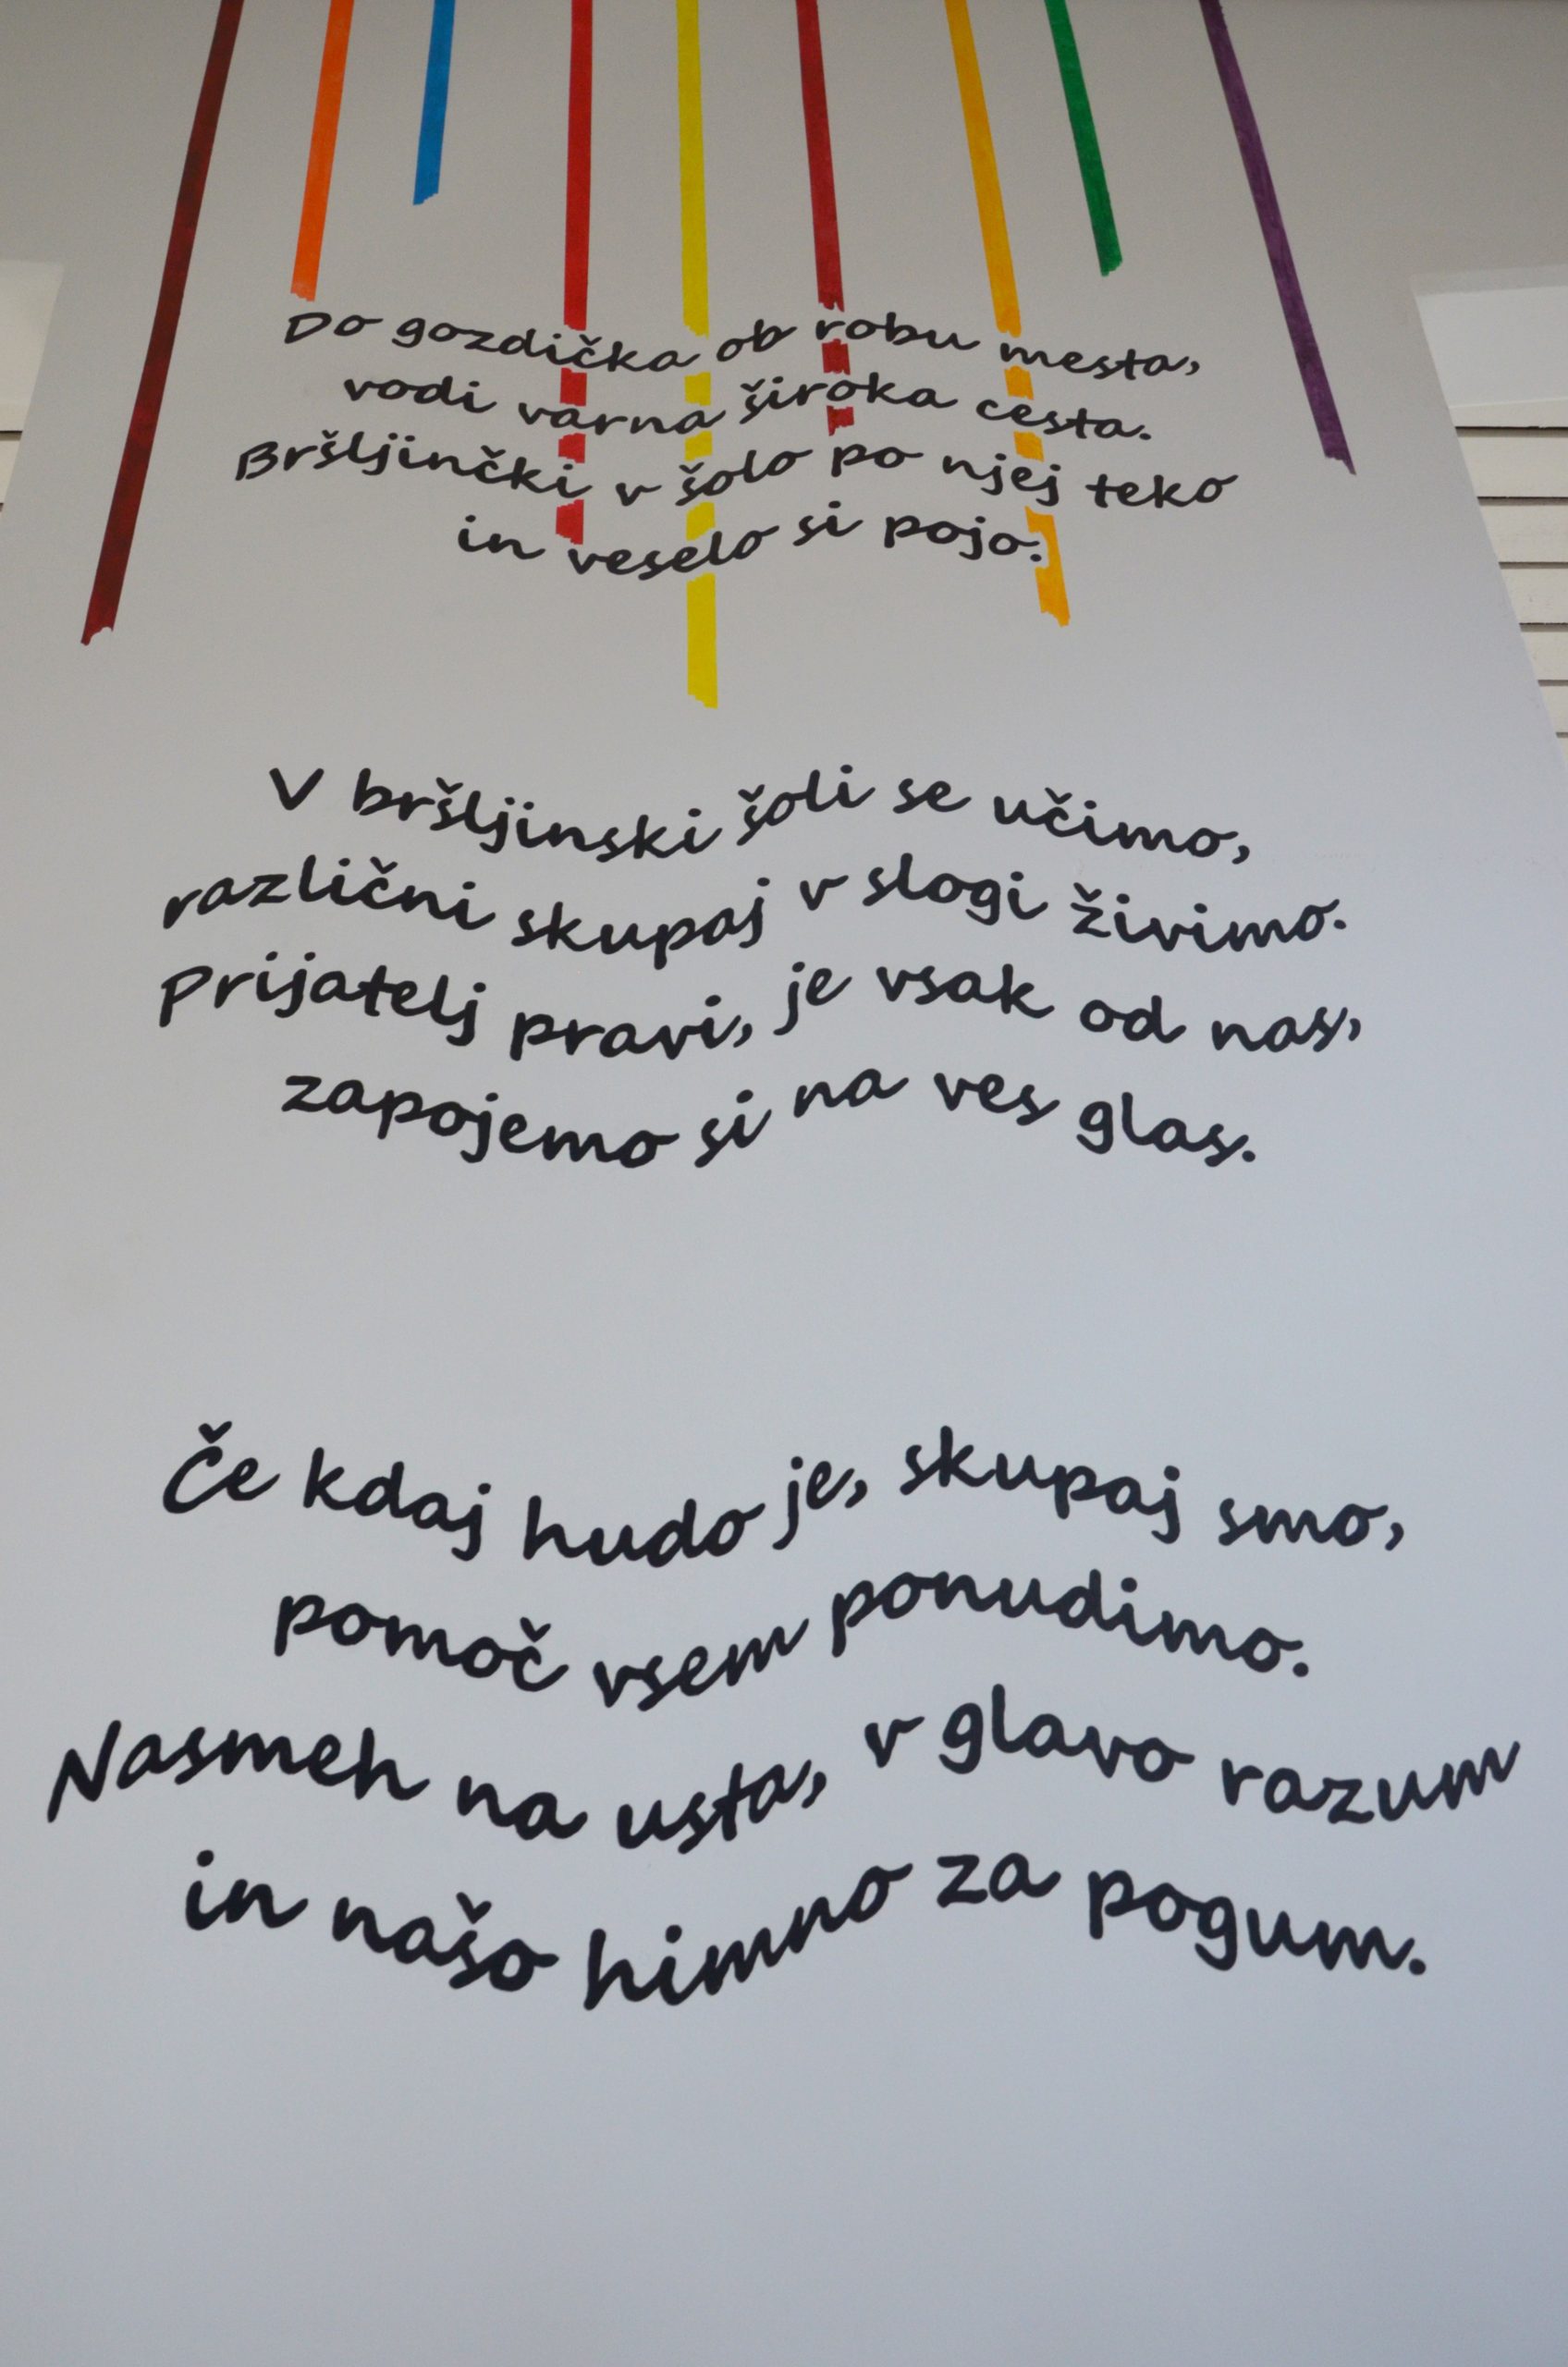 Do gozdička ob robu mesta,
vodi varna široka cesta.
Bršljinčki v šolo po njej teko
in veselo si pojo:
V bršljinski šoli se učimo,
različni skupaj v slogi živimo.
Prijatelj pravi, je vsak od nas,
zapojemo si na ves glas.
Če kdaj hudo je, skupaj smo,
pomoč vsem ponudimo.
Nasmeh na usta, v glavo razum
in našo himno za pogum.